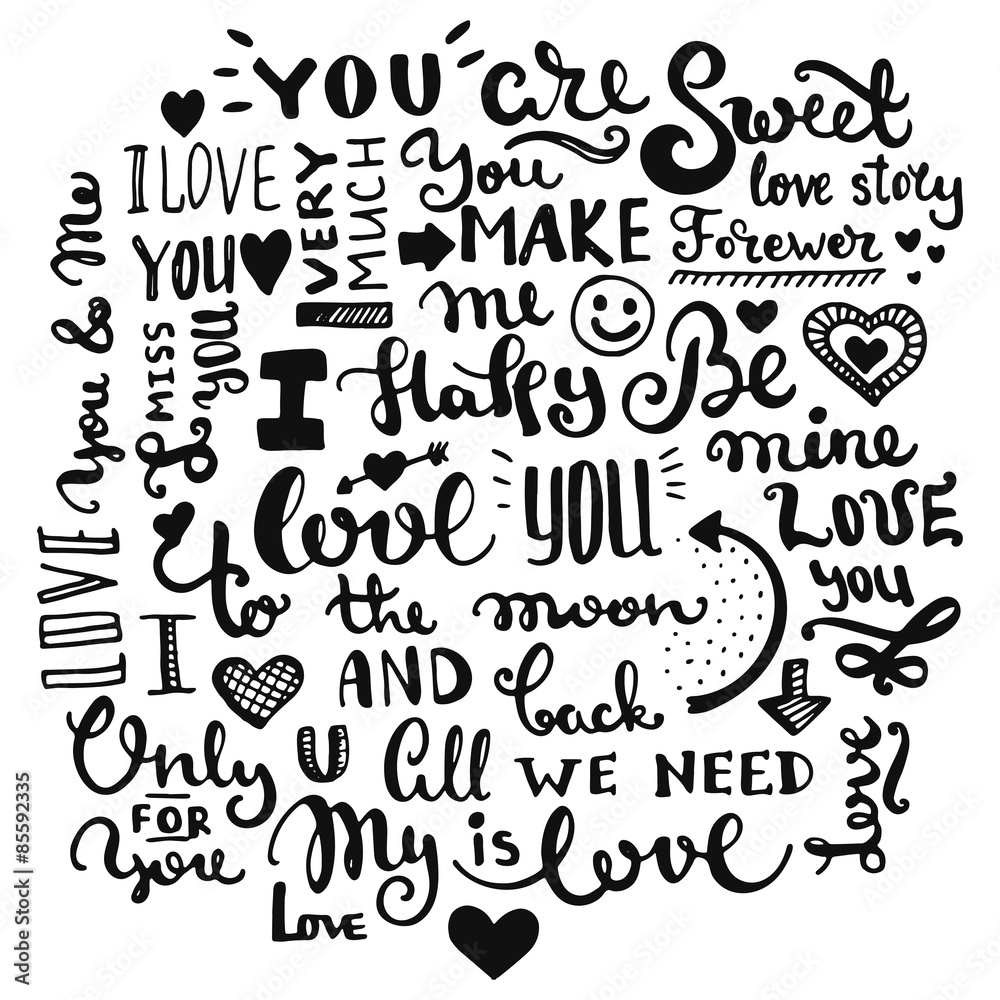 YOU are Sweet
I LOVE YOU
VERY MUCH
You MAKE me Happy
love story
Forewer
you & Me
I MISS YOU
Be mine
I love YOU
to the moon
AND back
LOVE you
LOVE
I
U
Only FOR You
All WE NEED is love
My LOVE
Love
Adobe Stock | #85592335